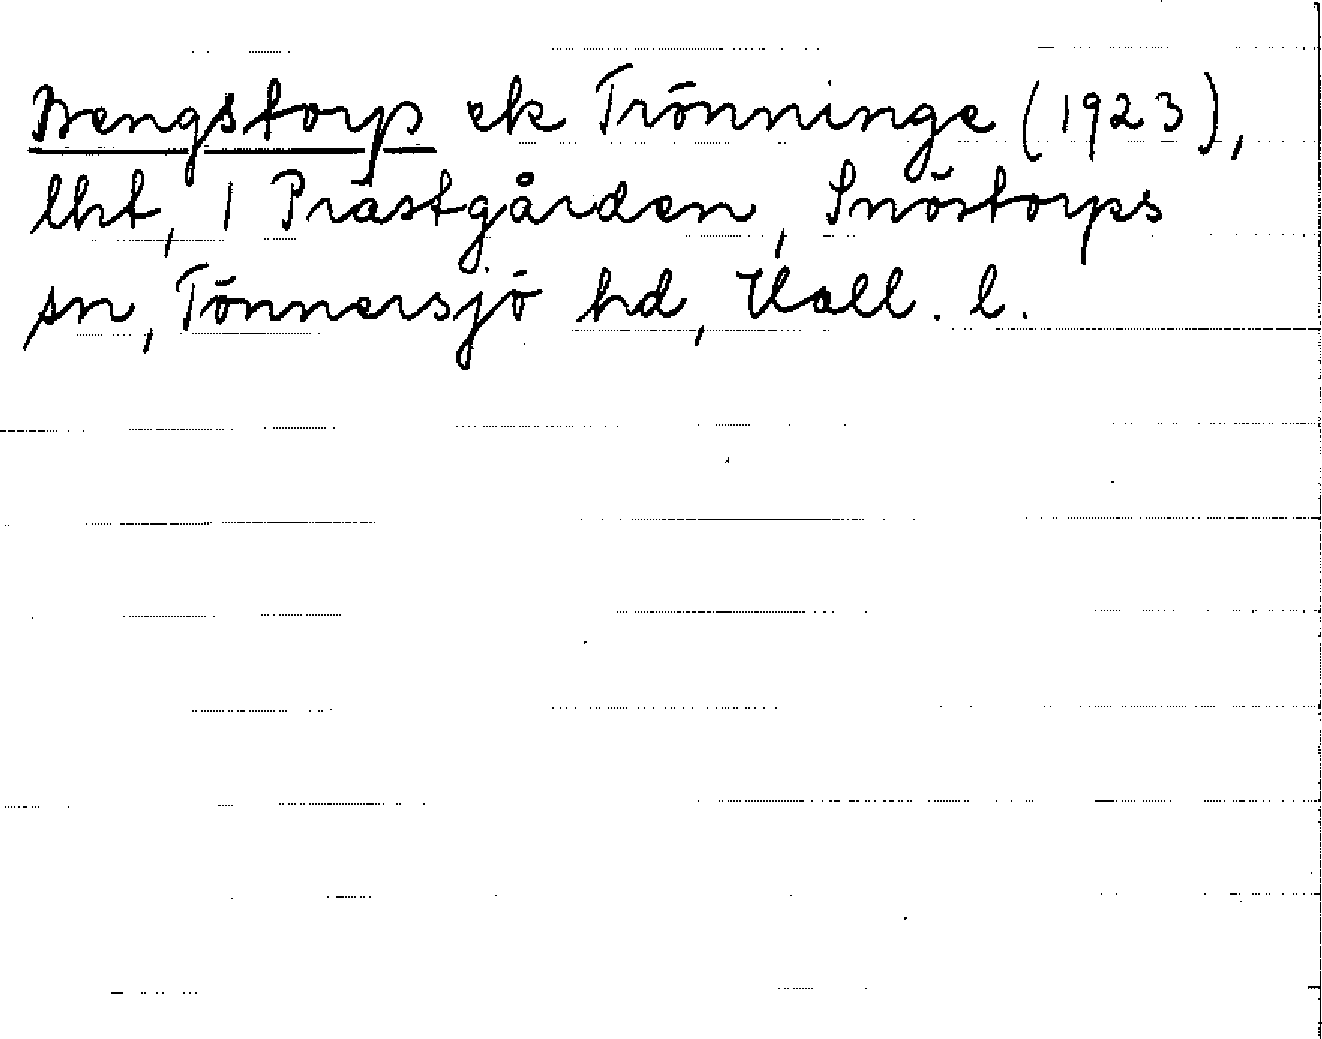 Brengstorp ek Trönninge (1923),
lht, 1 Prästgården, Snöstorps
sn, Tönnersjö hd, Hall. l.